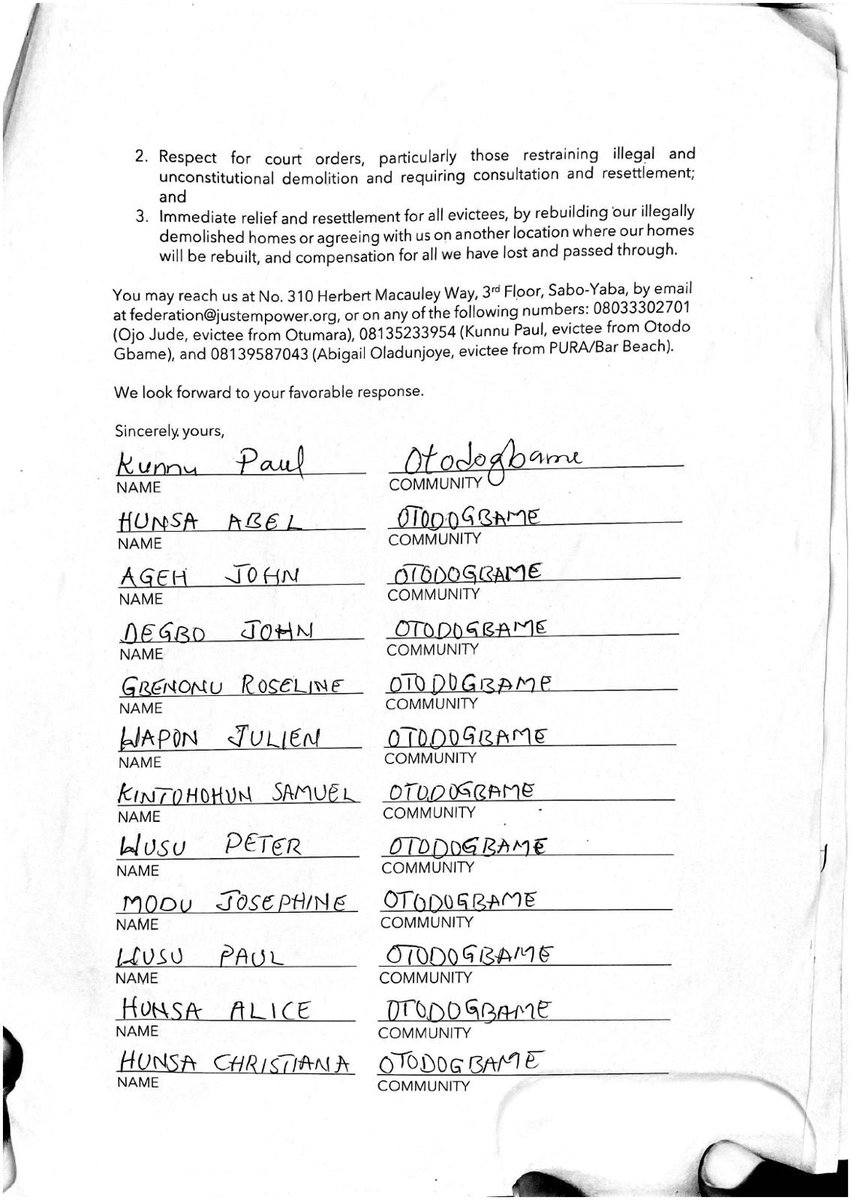 2. Respect for court orders, particularly those restraining illegal and
unconstitutional demolition and requiring consultation and resettlement;
and
3. Immediate relief and resettlement for all evictees, by rebuilding our illegally
demolished homes or agreeing with us on another location where our homes
will be rebuilt, and compensation for all we have lost and passed through.
You may reach us at No. 310 Herbert Macauley Way, 3rd Floor, Sabo-Yaba, by email
at federation@justempower.org, or on any of the following numbers: 08033302701
(Ojo Jude, evictee from Otumara), 08135233954 (Kunnu Paul, evictee from Otodo
Gbame), and 08139587043 (Abigail Oladunjoye, evictee from PURA/Bar Beach).
We look forward to your favorable response.
Sincerely yours,
Kunnu Paul Otodogbame
NAME COMMUNITY
HUNSA ABEL OTODOGBAME
NAME COMMUNITY
AGEH JOHN OTODOGBAME
NAME COMMUNITY
DEGBO JOHN OTODOGBAME
NAME COMMUNITY
GBENONU ROSELINE OTODOGBAME
NAME COMMUNITY
WAPON JULIEN OTODOGBAME
NAME COMMUNITY
KINTOHOHUN SAMUEL OTODOGBAME
NAME COMMUNITY
WUSU PETER OTODOGBAME
NAME COMMUNITY
MODU JOSEPHINE OTODOGBAME
NAME COMMUNITY
WUSU PAUL OTODOGBAME
NAME COMMUNITY
HUNSA ALICE OTODOGBAME
NAME COMMUNITY
HUNSA CHRISTIANA OTODOGBAME
NAME COMMUNITY